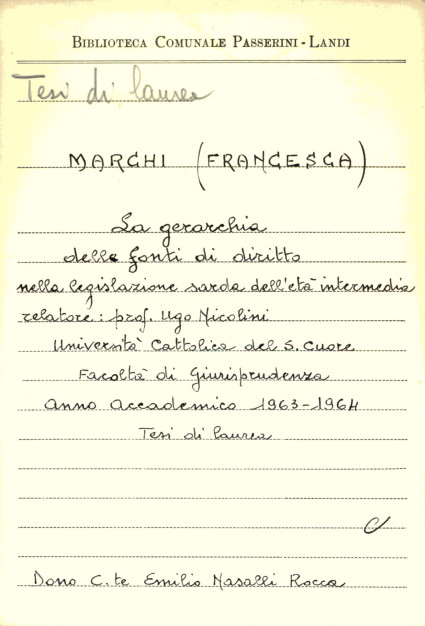 BIBLIOTECA COMUNALE PASSERINI - LANDI
Tesi di laurea
MARCHI (FRANCESCA)
La gerarchia
delle fonti di diritto
nella legislazione sarda dell'età intermedia
relatore: prof. Ugo Nicolini
Università Cattolica del S. Cuore
Facoltà di Giurisprudenza
Anno Accademico 1963-1964
Tesi di laurea
C
Dono C.te Emilio Nasalli Rocca